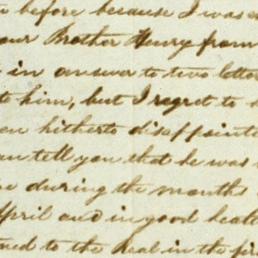 before because I was
our Brother Henry from
in answer to two letter
to him, but I regret to
hitherto disappointe
tell you that he was
during the months
April and in good healt
to the